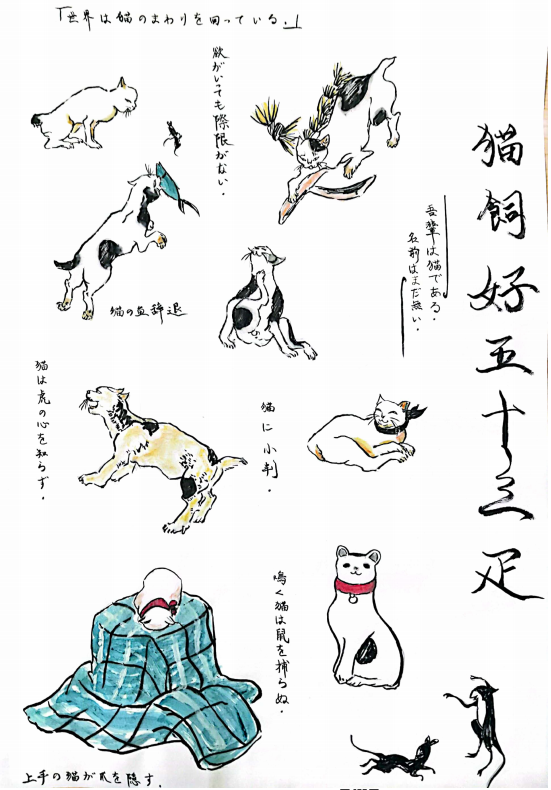 猫飼好五十三疋
「世界は猫のまわりを回っている.」
吾輩は猫である.
名前はまだ無い.
欲がいっても際限がない.
猫の魚辞退
猫に小判.
猫は虎の心を知らず.
鳴く猫は鼠を捕らぬ.
上手の猫が爪を隠す.